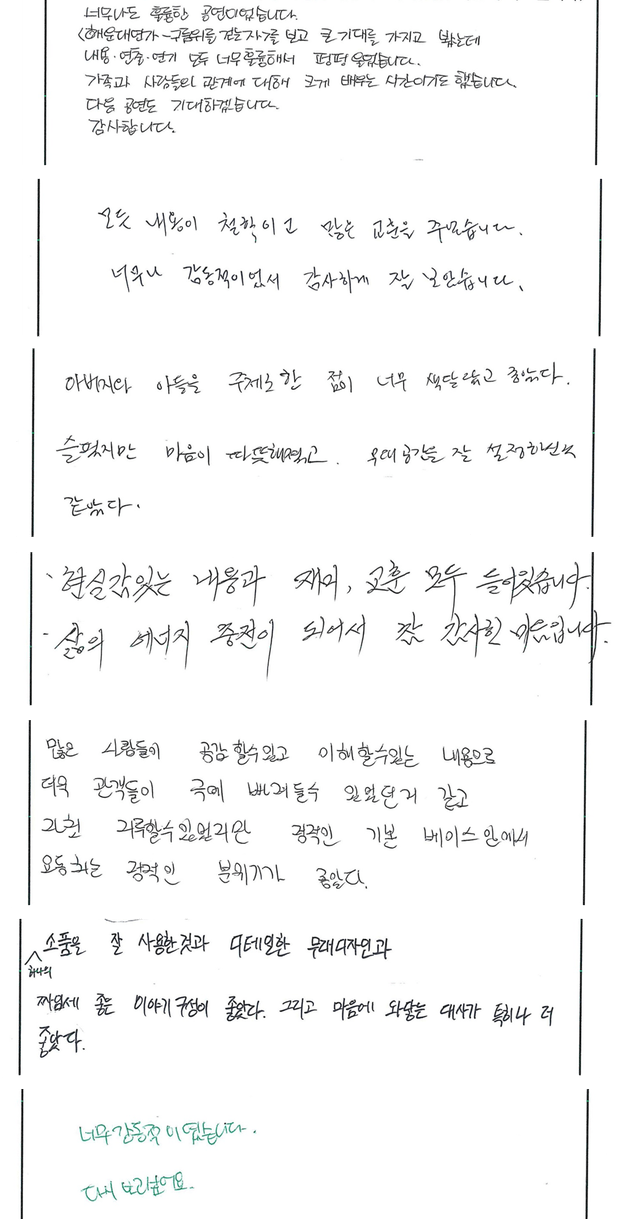 너무나도 훌륭한 공연이었습니다.
<해운대연가-구름위를 걷는자>를 보고 큰 기대를 가지고 봤는데
내용·연출·연기 모두 너무 훌륭해서 펑펑 울었습니다.
가족과 사람들의 관계에 대해 크게 배우는 시간이기도 했습니다.
다음 공연도 기대하겠습니다.
감사합니다.
모든 내용이 철학이고 많은 교훈을 주었습니다.
너무나 감동적이었서 감사하게 잘 보았습니다.
아버지와 아들을 주제로한 점이 너무 색달랐고 좋았다.
슬펐지만 마음이 따뜻해졌고. 무대공간을 잘 설정하신것
같았다.
·현실감있는 내용과 재미, 교훈 모두 들어있습니다.
·삶의 에너지 충전이 되어서 참 감사한 마음입니다.
많은 사람들이 공감할수있고 이해할수있는 내용으로
더욱 관객들이 극에 빠져들수 있었던거 같고
지루할수있었지만 정적인 기본 베이스안에서
요동치는 분위기가 좋았다.
소품을 잘 사용한것과 디테일한 무대디자인과
하나의
짜임세 좋은 이야기구성이 좋았다. 그리고 마음에 와닿는 대사가 특히나 더
좋았다.
너무감동적이였습니다.
다시 보러싶어요.